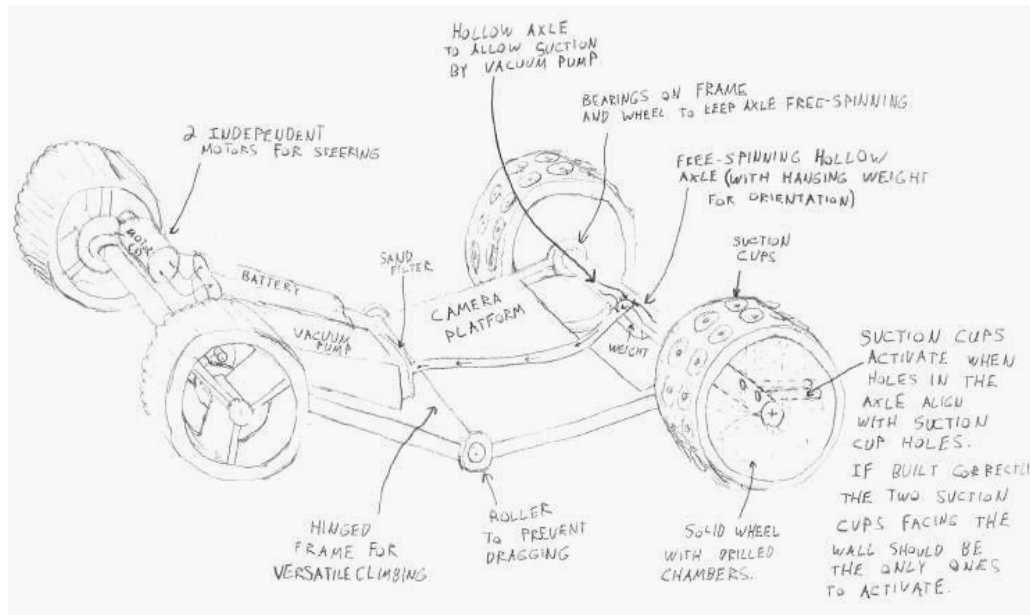 HOLLOW AXLE
TO ALLOW SUCTION
BY VACUUM PUMP
BEARINGS ON FRAME
AND WHEEL TO KEEP AXLE FREE-SPINNING
2 INDEPENDENT
MOTORS FOR STEERING
FREE-SPINNING HOLLOW
AXLE (WITH HANGING WEIGHT
FOR ORIENTATION)
SUCTION
CUPS
SAND
FILTER
BATTERY
CAMERA
PLATFORM
VACUUM
PUMP
WEIGHT
SUCTION CUPS
ACTIVATE WHEN
HOLES IN THE
AXLE ALIGN
WITH SUCTION
CUP HOLES.
IF BUILT CORRECTLY
THE TWO SUCTION
CUPS FACING THE
WALL SHOULD BE
THE ONLY ONES
TO ACTIVATE.
HINGED
FRAME FOR
VERSATILE CLIMBING
ROLLER
TO PREVENT
DRAGGING
SOLID WHEEL
WITH DRILLED
CHAMBERS.